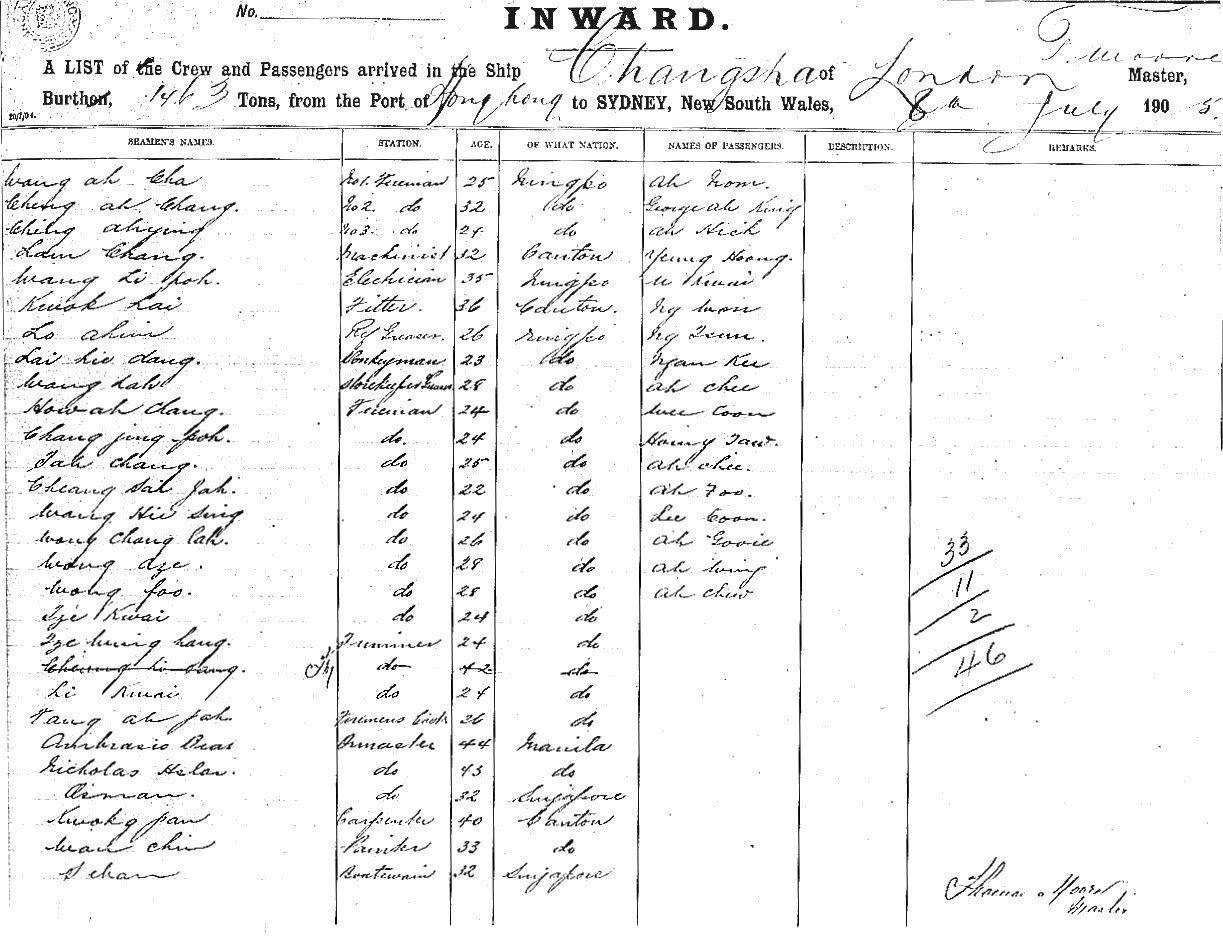 No.
INWARD.
T Moore
A LIST of the Crew and Passengers arrived in the Ship Changsha of London Master,
Burthen, 1463 Tons, from the Port of Hong Kong to SYDNEY, New South Wales, 8th July 1905.
20/7/04.
SEAMEN'S NAMES. STATION. AGE. OF WHAT NATION. NAMES OF PASSENGERS. DESCRIPTION. REMARKS.
Wang ah Cha No1. Fireman 25 Ningpo Ah Nom.
Cheng ah Chang. No2. do 32 do George Ah King
Ching ahying No3. do 24 do Ah Hick
Lam Chang. Machinist 32 Canton Yeung Hoong.
Wang Li poh. Electrician 35 Ningpo U Kwai
Kwok Lai Fitter. 36 Canton. Ng Won
Lo ahim Rf Greaser. 26 Ningpo Ng
Lai hie dang. Donkeyman 23 do Ngan Kee
Wang Lah Storekeeper 28 do Ah Chee
How ah Chang. Fireman 24 do Wee Coon
Chang jing poh. do. 24 do Homy Taw.
Tah Chang. do 25 do Ah Chee.
Cheang Sah Jah. do 22 do Ah Foo.
Wang Hie Sing do 24 do Lee Coon.
Wong Chang Lah. do 26 do Ah Gooie
Wong dze. do 28 do Ah Wing
Wong foo. do 28 do Ah Chew
Tze Kwai do 24 do
Tze Wung hang. Trimmer 24 do
Cheung Li Sang. do 42 do
Li Kwai do 24 do
Tang ah Jah Firemens Cook 26 do
Ambrosio Dias Qrmaster 44 Manila
Nicholas do 43 do
Osman. do 32 Singapore
Kwok g pan Carpenter 40 Canton
Wan Chin Painter 33 do
Sehan Boatswain 32 Singapore
33
11
2
46
Thomas Moore
Master